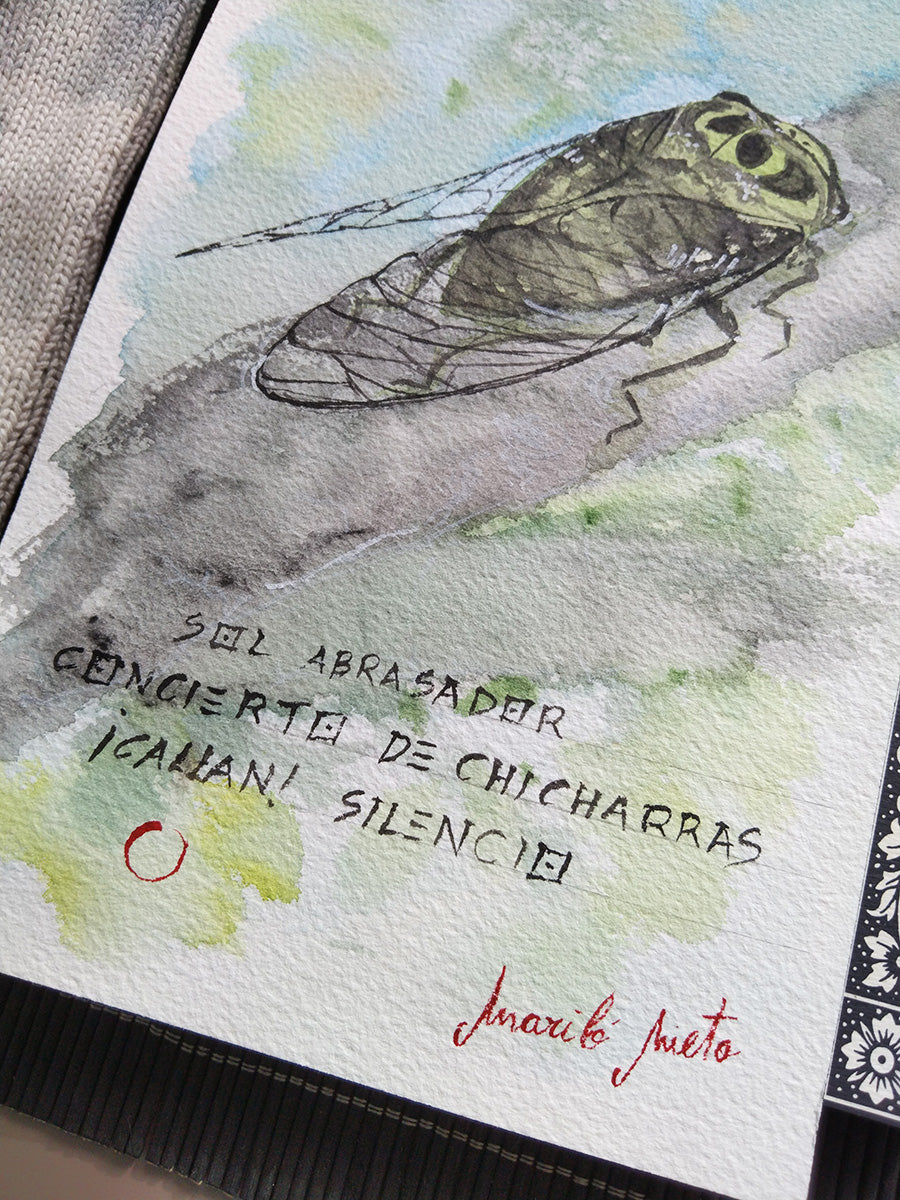 SOL ABRASADOR
CONCIERTO DE CHICHARRAS
¡CALLAN! SILENCIO
Maribé Nieto